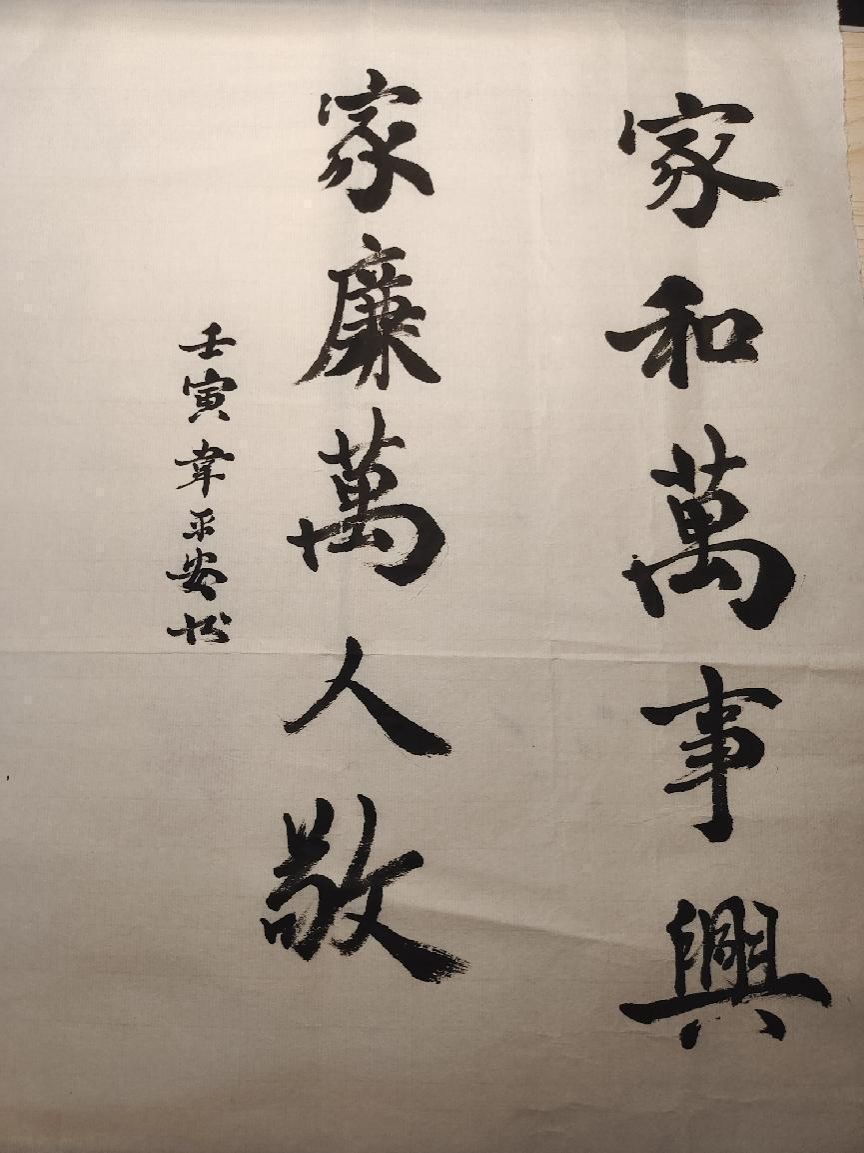 家和萬事興
家廉萬人敬
壬寅韋平安